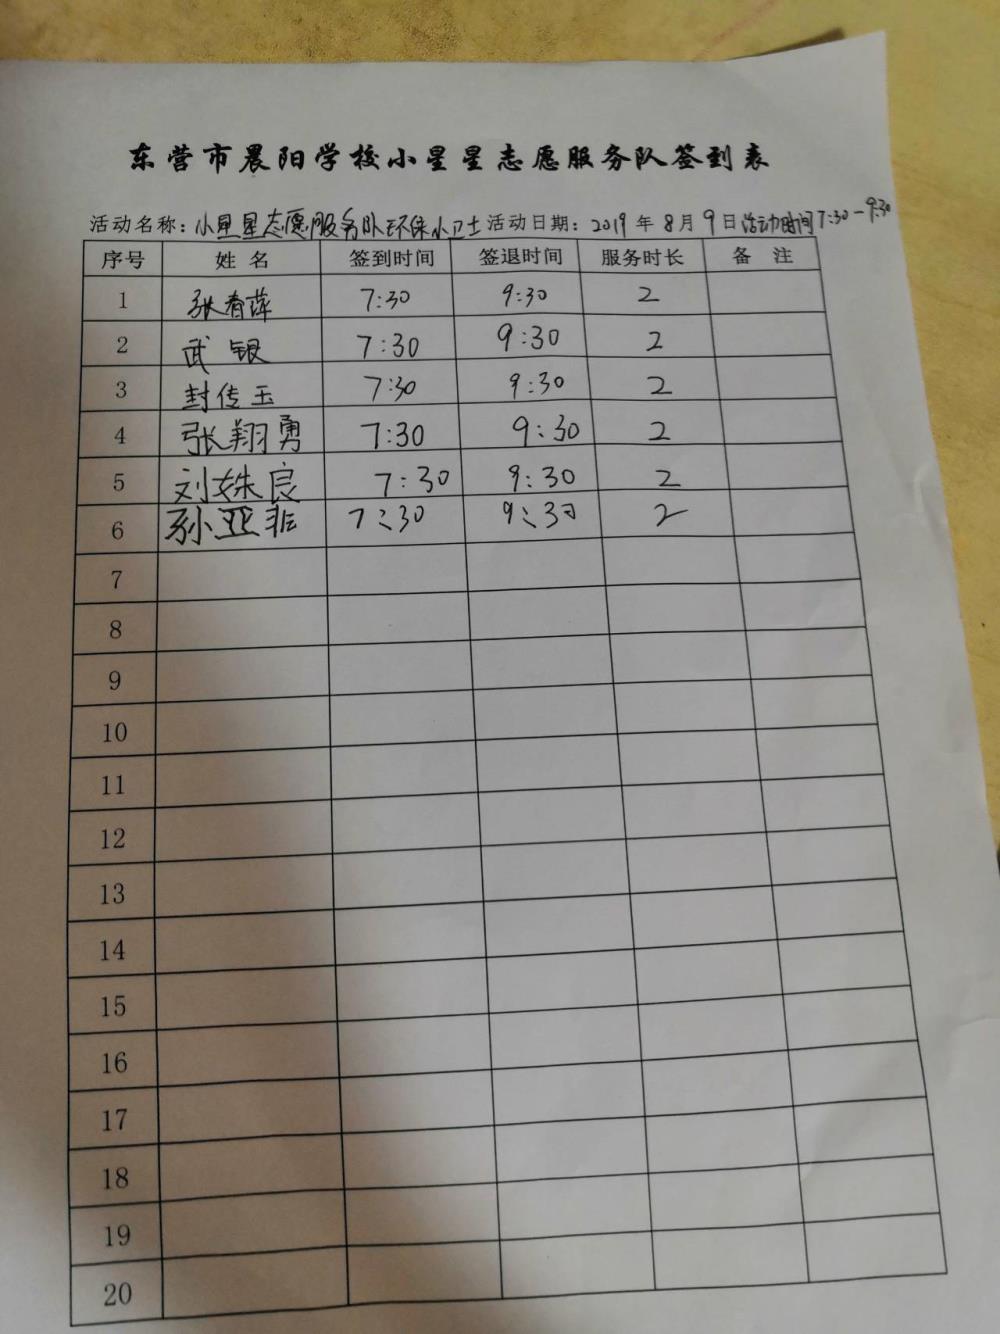 东营市晨阳学校小星星志愿服务队签到表
活动名称：小星星志愿服务队环保小卫士 活动日期：2019年8月9日 活动时间7:30-9:30
序号 姓名 签到时间 签退时间 服务时长 备注
1 张春萍 7:30 9:30 2
2 武银 7:30 9:30 2
3 封传玉 7:30 9:30 2
4 张翔勇 7:30 9:30 2
5 刘姝良 7:30 9:30 2
6 孙亚非 7:30 9:30 2
7
8
9
10
11
12
13
14
15
16
17
18
19
20